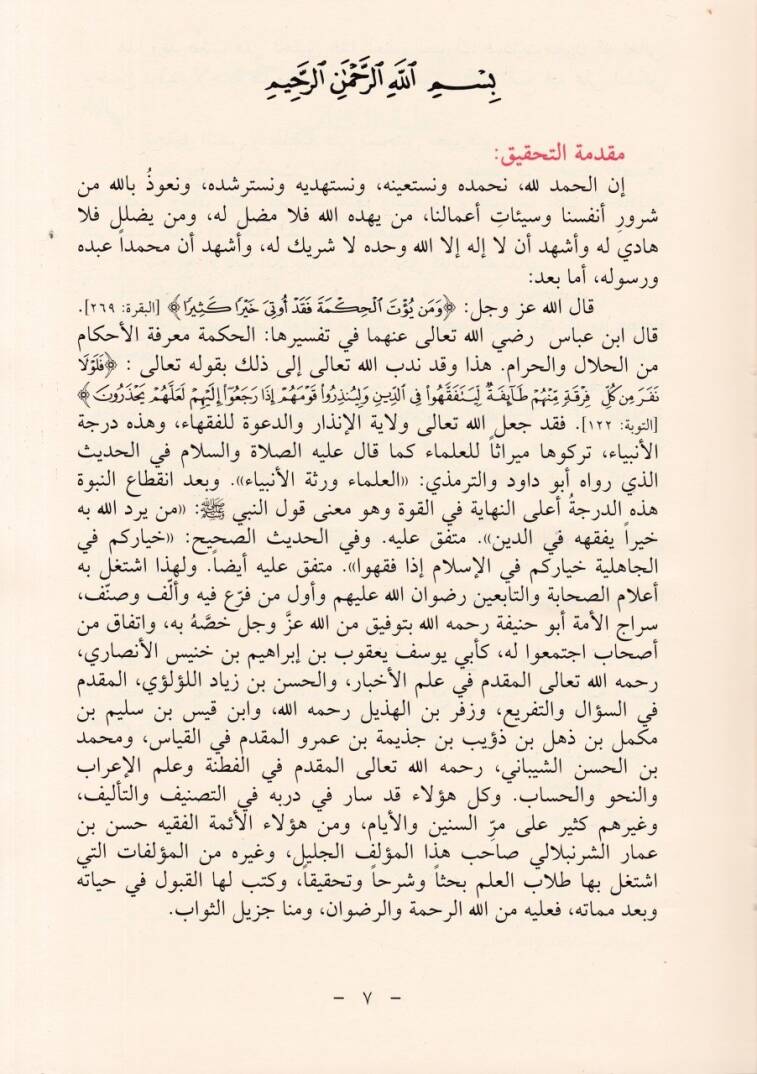 بِسْمِ اللَّهِ الرَّحْمَٰنِ الرَّحِيمِ
مقدمة التحقيق:
إن الحمد لله، نحمده ونستعينه، ونستهديه ونسترشده، ونعوذُ بالله من
شرورِ أنفسنا وسيئاتِ أعمالنا، من يهده الله فلا مضل له، ومن يضلل فلا
هادي له وأشهد أن لا إله إلا الله وحده لا شريك له، وأشهد أن محمداً عبده
ورسوله، أما بعد:
قال الله عز وجل: ﴿وَمَن يُؤْتَ الْحِكْمَةَ فَقَدْ أُوتِيَ خَيْرًا كَثِيرًا﴾ [البقرة: ٢٦٩].
قال ابن عباس رضي الله تعالى عنهما في تفسيرها: الحكمة معرفة الأحكام
من الحلال والحرام. هذا وقد ندب الله تعالى إلى ذلك بقوله تعالى : ﴿فَلَوْلَا
نَفَرَ مِن كُلِّ فِرْقَةٍ مِّنْهُمْ طَائِفَةٌ لِّيَتَفَقَّهُوا فِي الدِّينِ وَلِيُنذِرُوا قَوْمَهُمْ إِذَا رَجَعُوا إِلَيْهِمْ لَعَلَّهُمْ يَحْذَرُونَ﴾
[التوبة: ١٢٢]. فقد جعل الله تعالى ولاية الإنذار والدعوة للفقهاء، وهذه درجة
الأنبياء، تركوها ميراثاً للعلماء كما قال عليه الصلاة والسلام في الحديث
الذي رواه أبو داود والترمذي: «العلماء ورثة الأنبياء». وبعد انقطاع النبوة
هذه الدرجةُ أعلى النهاية في القوة وهو معنى قول النبي ﷺ: «من يرد الله به
خيراً يفقهه في الدين». متفق عليه. وفي الحديث الصحيح: «خياركم في
الجاهلية خياركم في الإسلام إذا فقهوا». متفق عليه أيضاً. ولهذا اشتغل به
أعلام الصحابة والتابعين رضوان الله عليهم وأول من فرّع فيه وألّف وصنّف،
سراج الأمة أبو حنيفة رحمه الله بتوفيق من الله عزَّ وجل خصَّهُ به، واتفاق من
أصحاب اجتمعوا له، كأبي يوسف يعقوب بن إبراهيم بن خنيس الأنصاري،
رحمه الله تعالى المقدم في علم الأخبار، والحسن بن زياد اللؤلؤي، المقدم
في السؤال والتفريع، وزفر بن الهذيل رحمه الله، وابن قيس بن سليم بن
مكمل بن ذهل بن ذؤيب بن جذيمة بن عمرو المقدم في القياس، ومحمد
بن الحسن الشيباني، رحمه الله تعالى المقدم في الفطنة وعلم الإعراب
والنحو والحساب. وكل هؤلاء قد سار في دربه في التصنيف والتأليف،
وغيرهم كثير على مرِّ السنين والأيام، ومن هؤلاء الأئمة الفقيه حسن بن
عمار الشرنبلالي صاحب هذا المؤلف الجليل، وغيره من المؤلفات التي
اشتغل بها طلاب العلم بحثاً وشرحاً وتحقيقاً، وكتب لها القبول في حياته
وبعد مماته، فعليه من الله الرحمة والرضوان، ومنا جزيل الثواب.
- ٧ -